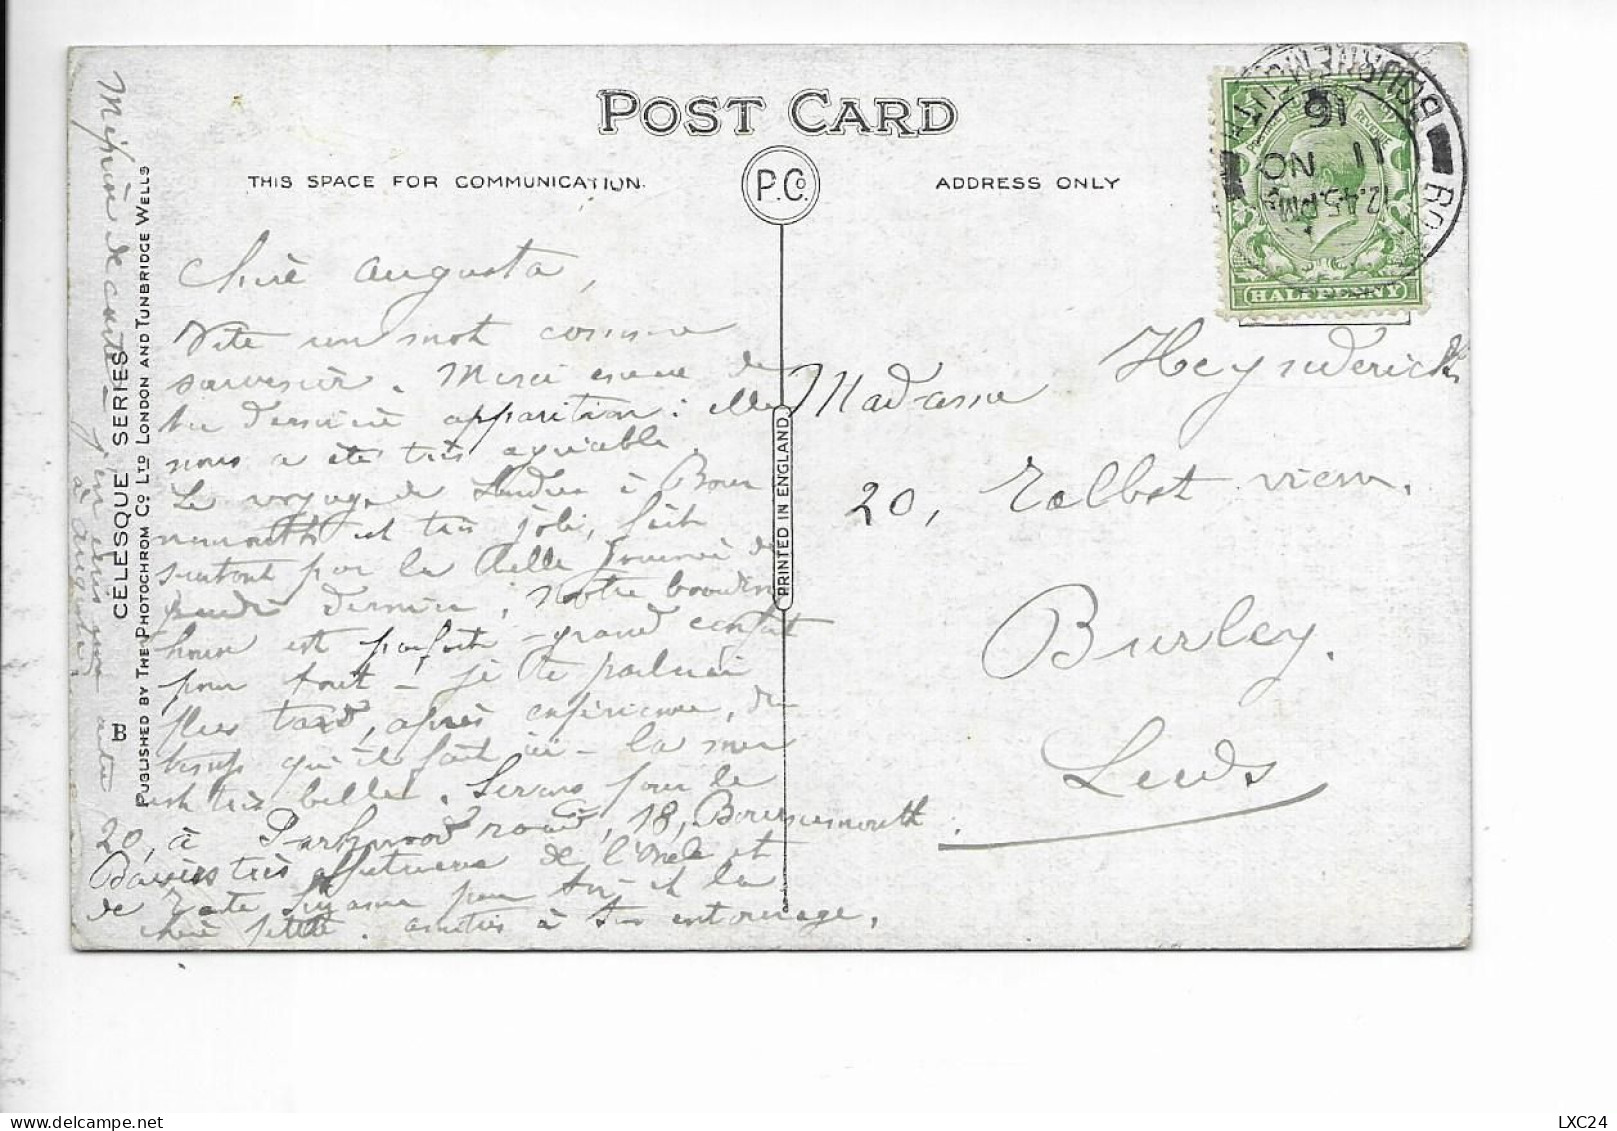 POST CARD
THIS SPACE FOR COMMUNICATION.
P. Co.
ADDRESS ONLY
BOURNEMOUTH
12.45.PM
11 NO
16
HALFPENNY
Chère Augusta,
Vite un mot comme
souvenir. Merci encore de
ta dernière apparition: elle
nous a été très agréable.
Le voyage de Londres à Bour
nemouth est très joli, fait
surtout par la belle journée de
jeudi dernier; notre boarding
house est parfait – grand confort
pour tout – je te parlerai
plus tard, après expérience, du
temps qu'il fait ici – la mer
est très belle. Serons pour le
20, à Parkwood road, 18, Bournemouth.
Baisers très affectueux de l'Oncle et
de Tante pour toi et la
chère petite. amitiés à ton entourage.
de carte – j'en suis
à Augusta
B CELESQUE SERIES
PUBLISHED BY THE PHOTOCHROM CO LTD LONDON AND TUNBRIDGE WELLS
PRINTED IN ENGLAND
Madame Heynderickx
20, Talbot view.
Burley.
Leeds
LXC24